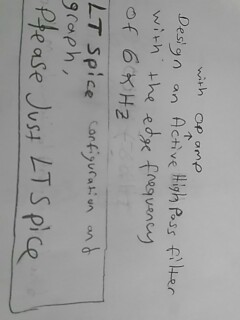 with op amp
Design an Active High Pass filter
with the edge frequency
of 6KHz
LTspice configuration and
graph,
Please Just LTSpice